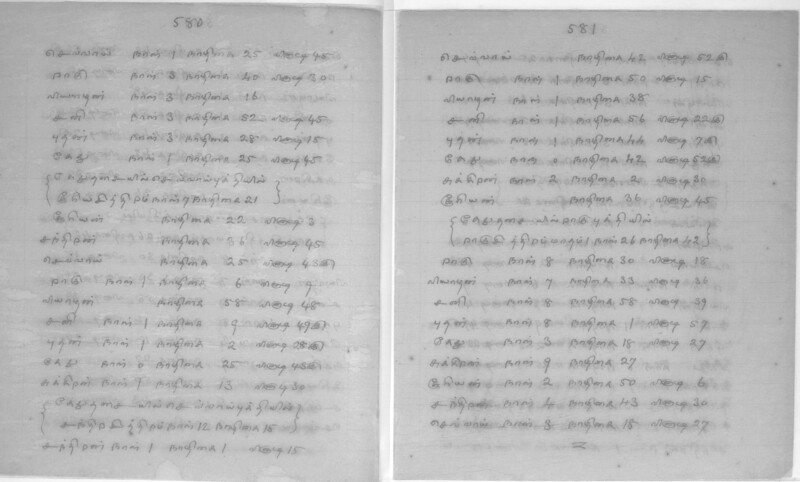 580
செவ்வாய் நாள் 1 நாழிகை 25 விநாடி 45
ராகு நாள் 3 நாழிகை 40 விநாடி 30
வியாழன் நாள் 3 நாழிகை 16
சனி நாள் 3 நாழிகை 52 விநாடி 45
புதன் நாள் 3 நாழிகை 28 விநாடி 15
கேது நாள் 1 நாழிகை 25 விநாடி 45
கேதுதசையில் செவ்வாய்புத்தியில்
நாழிகை 21
நாழிகை 22 விநாடி 3
சந்திரன் நாழிகை 36 விநாடி 45
செவ்வாய் நாழிகை 25 விநாடி 43
ராகு நாள் 1 நாழிகை 6 விநாடி 9
வியாழன் நாழிகை 58 விநாடி 48
சனி நாள் 1 நாழிகை 9 விநாடி 49
புதன் நாள் 1 நாழிகை 2 விநாடி 28
கேது நாள் 0 நாழிகை 25 விநாடி 43
சுக்கிரன் நாள் 1 நாழிகை 13 விநாடி 30
கேதுதசையில் செவ்வாய்புத்தியில்
நாள் 12 நாழிகை 15
சந்திரன் நாள் 1 நாழிகை 1 விநாடி 15
581
செவ்வாய் நாழிகை 42 விநாடி 52
ராகு நாள் 1 நாழிகை 50 விநாடி 15
வியாழன் நாள் 1 நாழிகை 38
சனி நாள் 1 நாழிகை 56 விநாடி 22
புதன் நாள் 1 நாழிகை 44 விநாடி 7
கேது நாள் 0 நாழிகை 42 விநாடி 52
சுக்கிரன் நாள் 2 நாழிகை 2 விநாடி 30
நாழிகை 36 விநாடி 45
கேதுதசையில் ராகுபுத்தியில்
நாள் 26 நாழிகை 42
ராகு நாள் 8 நாழிகை 30 விநாடி 18
வியாழன் நாள் 7 நாழிகை 33 விநாடி 36
சனி நாள் 8 நாழிகை 58 விநாடி 39
புதன் நாள் 8 நாழிகை 1 விநாடி 57
கேது நாள் 3 நாழிகை 18 விநாடி 27
சுக்கிரன் நாள் 9 நாழிகை 27
நாள் 2 நாழிகை 50 விநாடி 6
சந்திரன் நாள் 4 நாழிகை 43 விநாடி 30
செவ்வாய் நாள் 3 நாழிகை 18 விநாடி 27